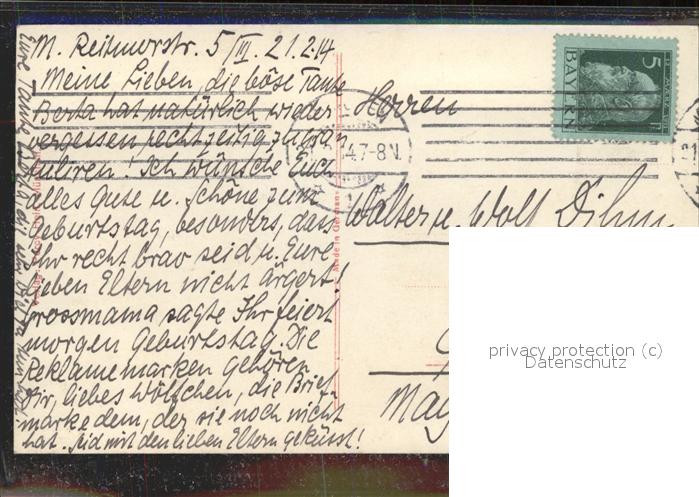 M. Reitmorstr. 5/III. 21.2.14
Meine Lieben, die böse Tante
Berta hat natürlich wieder
vergessen rechtzeitig zu gra-
tuliren! Ich wünsche Euch
alles Gute u. Schöne zum
Geburtstag, besonders, dass
Ihr recht brav seid u. Eure
lieben Eltern nicht ärgert!
Grossmama sagte Ihr feiert
morgen Geburtstag. Die
Reklamemarken gehören
Dir, liebes Wölfchen, die Brief-
marke dem, der sie noch nicht
hat. Seid mit den lieben Eltern geküsst!
Eure Tante Berta
Herren
Walter u. Wolf Dihm
May
BAYERN
5
4.7-8 V.
Made in Germany
privacy protection (c)
Datenschutz